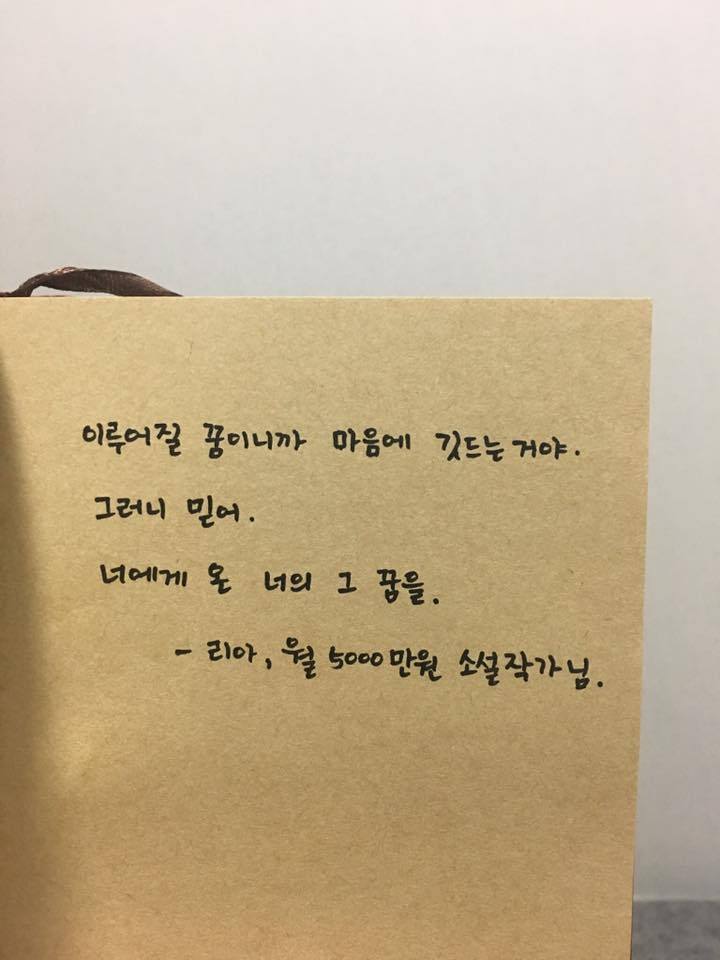 이루어질 꿈이니까 마음에 깃드는거야.
그러니 믿어.
너에게 온 너의 그 꿈을.
- 리아, 월 5000만원 소설작가님.